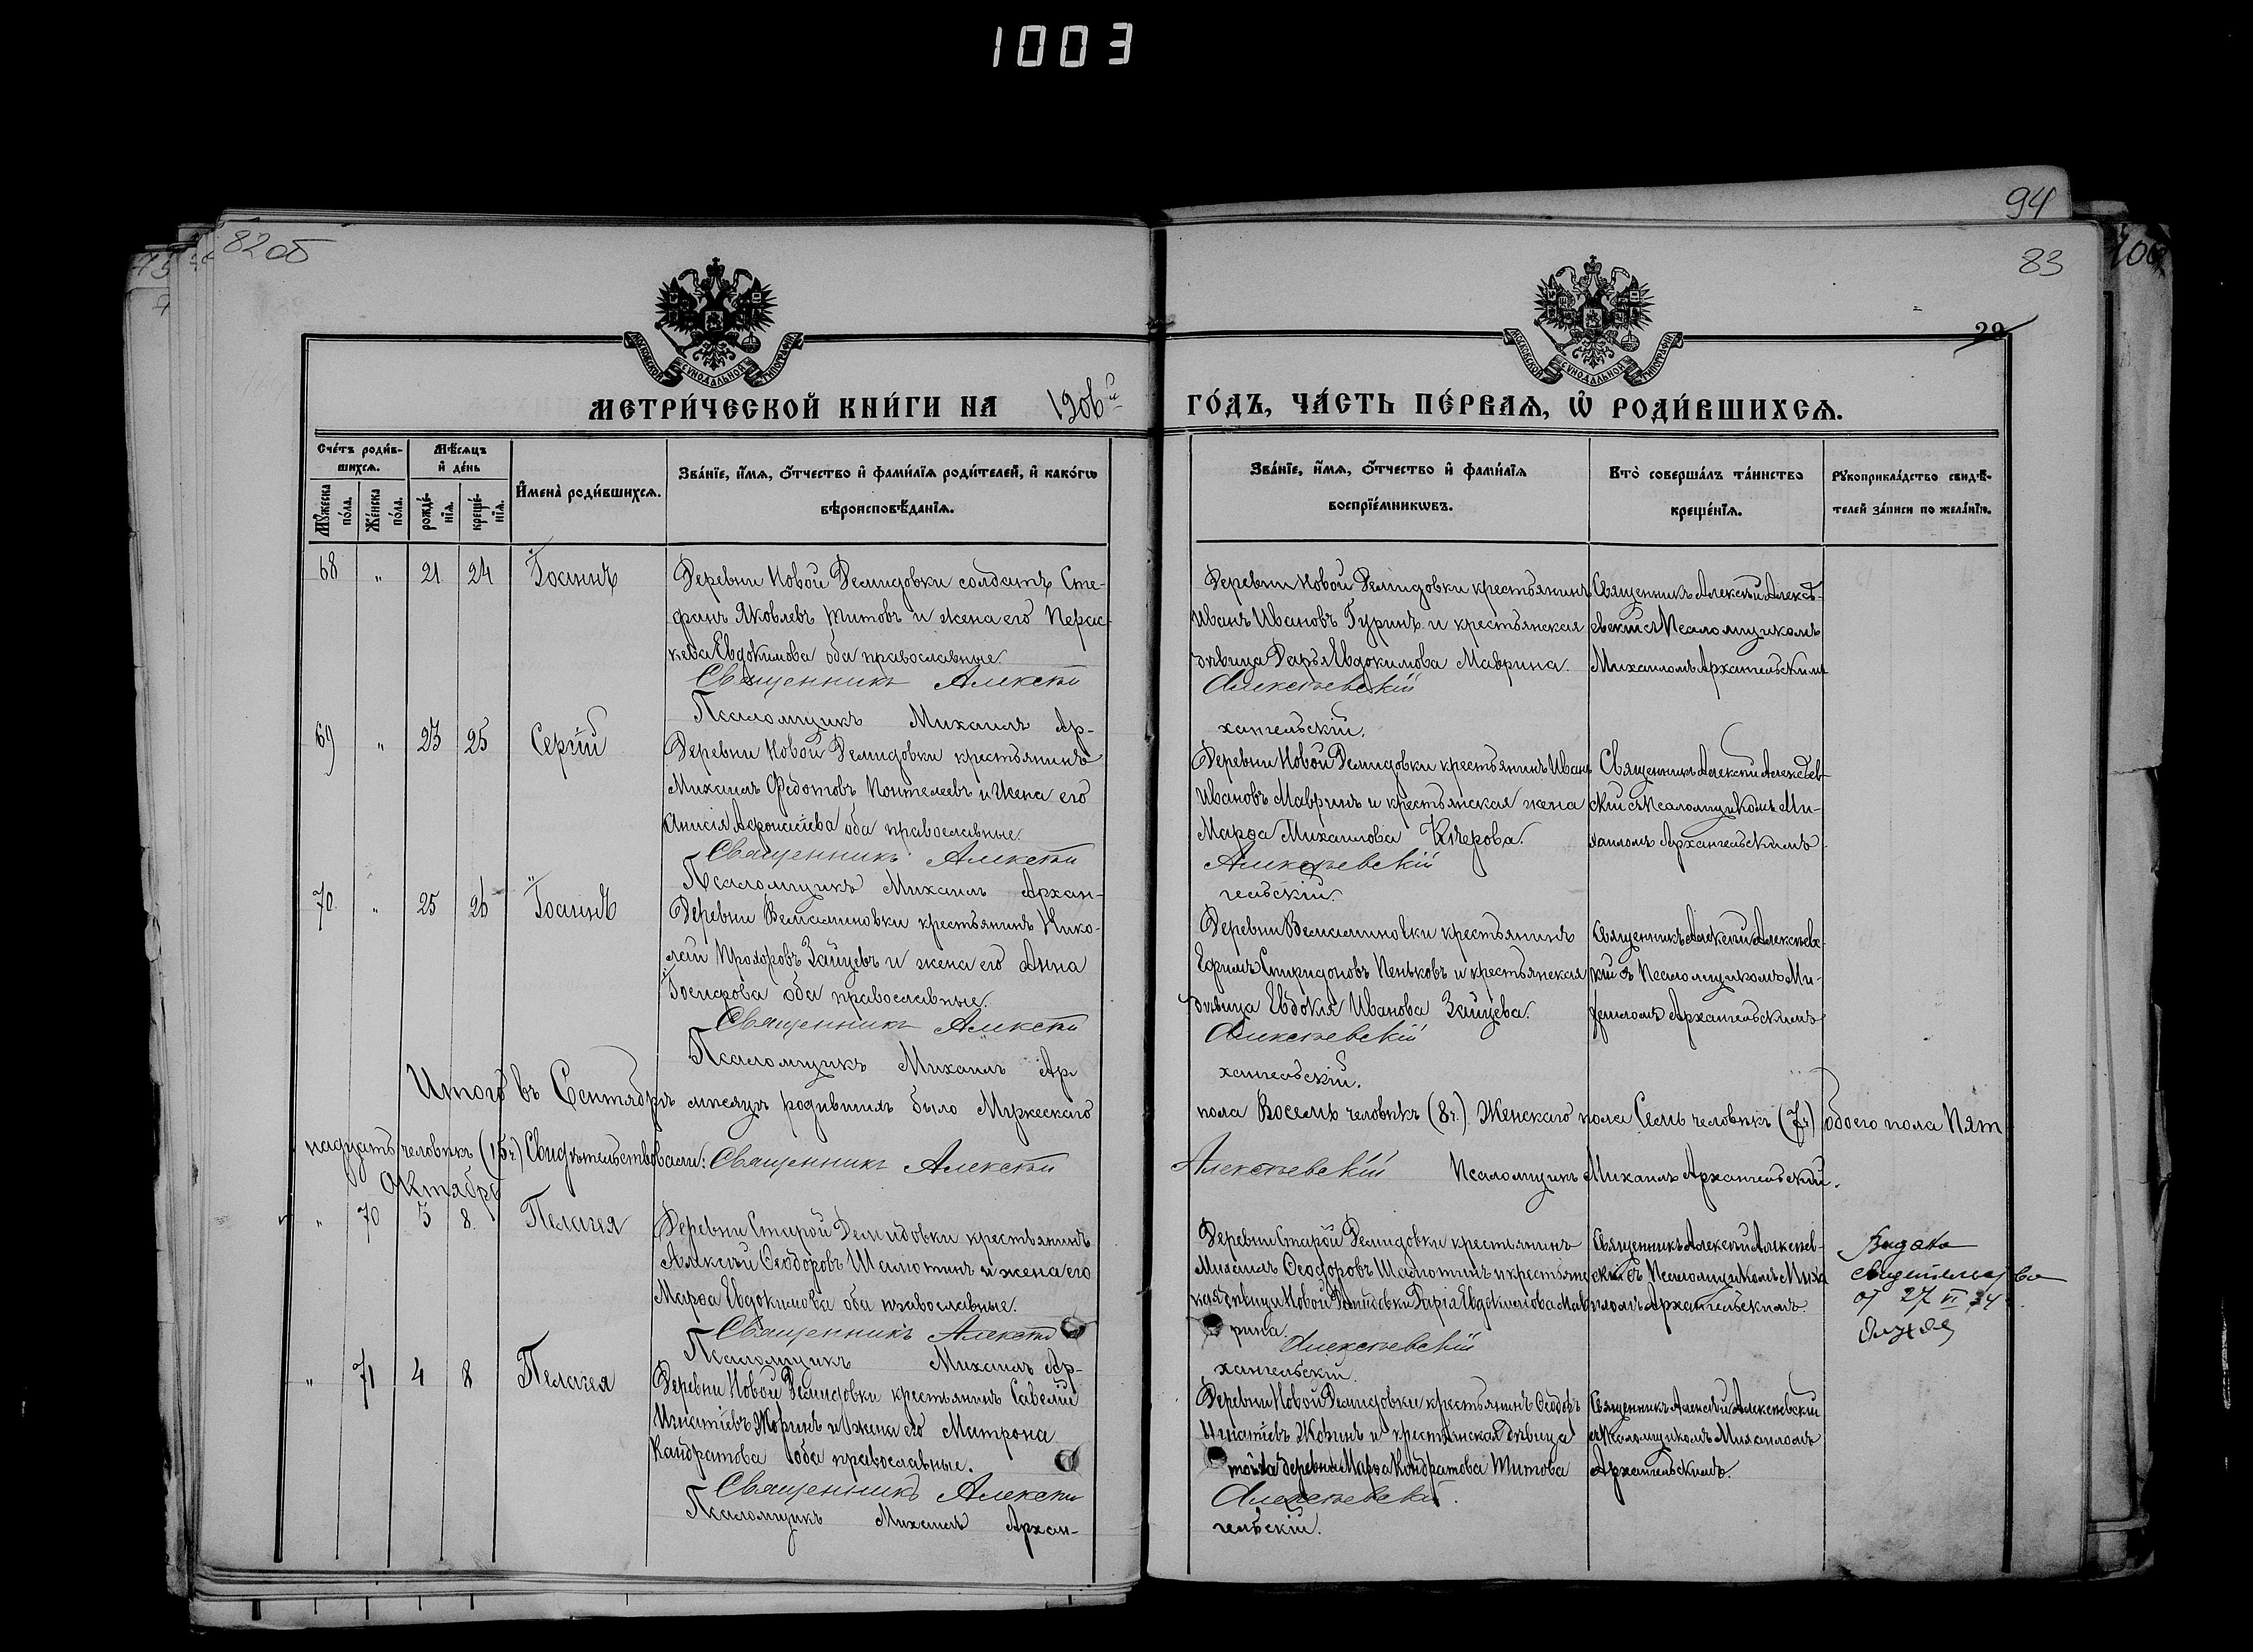 1003
94
82об
83
100
29
МОСКОВСКОЙ СѴНОДАЛЬНОЙ ТИПОГРАФІИ
МОСКОВСКОЙ СѴНОДАЛЬНОЙ ТИПОГРАФІИ
МЕТРИ́ЧЕСКОЙ КНИ́ГИ НА 1906й ГО́ДЪ, ЧА́СТЬ ПЕ́РВАѦ, Ѡ҆ РОДИ́ВШИХСѦ.
Сче́тъ роди́в-
шихсѧ.
Мѣ́сѧцъ
и҆ де́нь
Мꙋ́жеска по́ла.
Же́нска по́ла.
рожде́-нїѧ.
креще́-нїѧ.
И҆мена̀ роди́вшихсѧ.
Зва́нїе, и҆́мѧ, ѻ҆́тчество и҆ фами́лїѧ роди́телей, и҆ како́гѡ
вѣроисповѣ́данїѧ.
Зва́нїе, и҆́мѧ, ѻ҆́тчество и҆ фами́лїѧ
воспрїе́мникѡвъ.
Кто̀ соверша́лъ та́инство
креще́нїѧ.
Рꙋкоприкла́дство свидѣ́-
телей за́писи по жела́нїю.
68 " 21 24 Іоаннъ
Деревни Новой Демидовки солдатъ Сте-
фанъ Яковлевъ Титовъ и жена его Парас-
кева Евдокимова оба православные.
Священникъ Алексѣй
Псаломщикъ Михаилъ Ар-
Деревни Новой Демидовки крестьянинъ
Иванъ Ивановъ Гуринъ и крестьянская
дѣвица Дарья Евдокимова Маврина.
Алексѣевскій
хангельскій.
Священникъ Алексѣй Алексѣ-
евскій съ Псаломщикомъ
Михаиломъ Архангельскимъ
69 " 23 25 Сергій
Деревни Новой Демидовки крестьянинъ
Михаилъ Федотовъ Понтелеевъ и жена его
Анисія Афонасіева оба православные.
Священникъ Алексѣй
Псаломщикъ Михаилъ Архан-
Деревни Новой Демидовки крестьянинъ Иванъ
Ивановъ Мавринъ и крестьянская жена
Марѳа Михаилова
Алексѣевскій
гельскій.
Священникъ Алексѣй Алексѣев-
скій съ Псаломщикомъ Ми-
хаиломъ Архангельскимъ
70. " 25 26 Іоаннъ
Деревни Вельяминовки крестьянинъ Нико-
лай Прохоровъ Зайцевъ и жена его Анна
Іосифова оба православные.
Священникъ Алексѣй
Псаломщикъ Михаилъ Ар-
Деревни Вельяминовки крестьянинъ
Ефимъ Спиридоновъ Пеньковъ и крестьянская
дѣвица Евдокія Иванова Зайцева.
Алексѣевскій
хангельскій.
Священникъ Алексѣй Алексѣевс-
кій съ Псаломщикомъ Ми-
хаиломъ Архангельскимъ
Итого въ Сентябрѣ мѣсяцѣ родившихъ было Мужескаго пола Восемь человѣкъ (8ч.) Женскаго пола Семь человѣкъ (7ч) обоего пола Пят-
надцать человѣкъ (15ч) Свидѣтельствовали: Священникъ Алексѣй Алексѣевскій Псаломщикъ Михаилъ Архангельскій.
Октябрь
" 70 3 8. Пелагея
Деревни Старой Демидовки крестьянинъ
Алексѣй Ѳеодоровъ Шалотинъ и жена его
Марѳа Евдокимова оба православные.
Священникъ Алексѣй
Псаломщикъ Михаилъ Ар-
Деревни Старой Демидовки крестьянинъ
Михаилъ Ѳеодоровъ Шалотинъ и крестьянс-
кая дѣвица Новой Демидовки Дарія Евдокимова Мав-
рина.
Алексѣевскій
хангельскій.
Священникъ Алексѣй Алексѣев-
скій съ Псаломщикомъ Миха
иломъ Архангельскимъ.
Выдано
свидетельство
от 27 VI 24
" 71 4 8 Пелагея
Деревни Новой Демидовки крестьянинъ Савелій
Игнатіевъ Жоринъ и жена его Матрона
Кандратова оба православные.
Священникъ Алексѣй
Псаломщикъ Михаилъ Архан-
Деревни Новой Демидовки крестьянинъ Ѳеодоръ
Игнатіевъ Жоринъ и крестьянская дѣвица
той же деревни Марѳа Кондратова Титова
Алексѣевскій.
гельскій.
Священникъ Алексѣй Алексѣевскій
съ Псаломщикомъ Михаиломъ
Архангельскимъ.